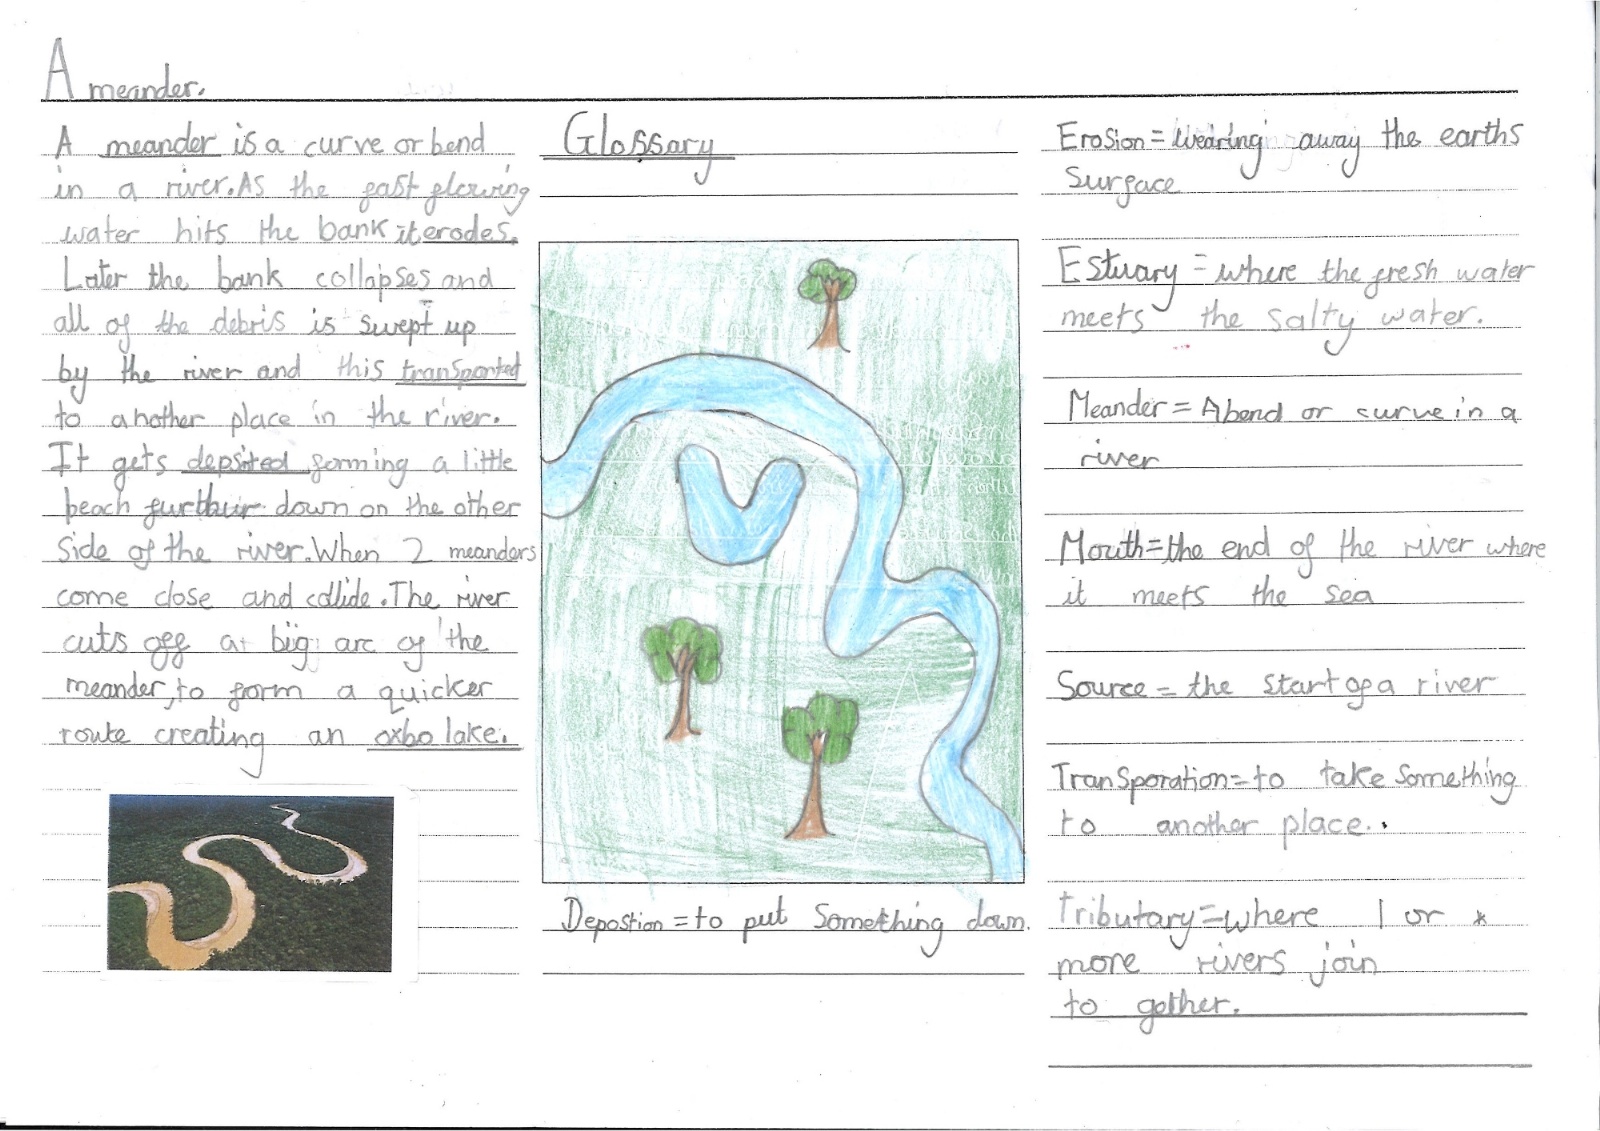 A meander.
A meander is a curve or bend
in a river. As the fast flowing
water hits the bank it erodes.
Later the bank collapses and
all of the debris is swept up
by the river and this transported
to another place in the river.
It gets depsited forming a little
beach furthur down on the other
side of the river. When 2 meanders
come close and collide. The river
cuts off a big arc of the
meander, to form a quicker
route creating an oxbo lake.
Glossary
Depostion = to put something down.
Erosion = wearing away the earths
surface
Estuary = where the fresh water
meets the salty water.
Meander = A bend or curve in a
river
Mouth = the end of the river where
it meets the sea
Source = the start of a river
Transporation = to take something
to another place.
Tributary = where 1 or *
more rivers join
to gether.